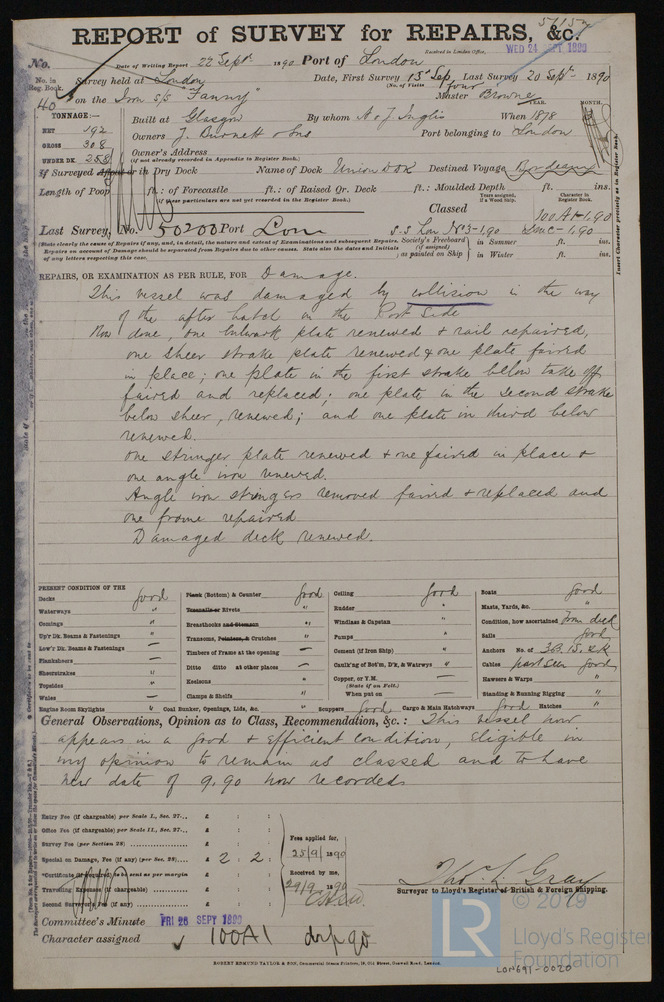 REPORT of SURVEY for REPAIRS, &c.
Received in London Office,
WED 24 SEPT 1890
No.
Date of Writing Report 22 Sept 1890 Port of London
No. in Reg. Book.
40
Survey held at London
Date, First Survey 15th Sep, Last Survey 20 Sept 1890
(No. of Visits four
on the Iron s/s "Fanny"
Master Browne
TONNAGE:—
NET 192
GROSS 308
UNDER DK. 258
Built at Glasgow By whom A & J Inglis When 1878
YEAR. MONTH.
Owners J. Burnett & Sons Port belonging to London
Owner's Address
(if not already recorded in Appendix to Register Book.)
If Surveyed Afloat or in Dry Dock Name of Dock Union D Dk Destined Voyage Bordeaux
Length of Poop ft.: of Forecastle ft.: of Raised Qr. Deck ft.: Moulded Depth ft. ins.
(if these particulars are not yet recorded in the Register Book.)
Classed
Years assigned, if a Wood Ship.
Character in Register Book.
100A1-1,90
Last Survey, No. 50200 Port Lon
S.S Lon No3-1,90
LMC-1,90
(State clearly the cause of Repairs if any, and, in detail, the nature and extent of Examinations and subsequent Repairs.
Repairs on account of Damage should be separated from Repairs due to other causes. State also the dates and Initials
of any letters respecting this case.
Society's Freeboard (if assigned) as painted on Ship
in Summer ft. ins.
in Winter ft. ins.
Insert Character precisely as in Register Book.
REPAIRS, OR EXAMINATION AS PER RULE, FOR Damage.
This vessel was damaged by collision in the way
of the after hatch on the Port Side
Now done, one bulwark plate renewed & rail repaired,
one sheer strake plate renewed & one plate faired
in place; one plate in the first strake below take off
faired and replaced; one plate in the second strake
below sheer, renewed; and one plate in third below
renewed.
One stringer plate renewed & one faired in place &
one angle iron renewed.
Angle iron stringers removed faired & replaced and
one frame repaired
Damaged deck renewed.
PRESENT CONDITION OF THE
Decks good
Waterways "
Comings "
Up'r Dk. Beams & Fastenings "
Low'r Dk. Beams & Fastenings —
Planksheers —
Sheerstrakes "
Topsides "
Wales —
Engine Room Skylights "
Plank (Bottom) & Counter good
Treenails or Rivets "
Breasthooks and Stemson "
Transoms, Pointers, & Crutches "
Timbers of Frame at the opening —
Ditto ditto at other places —
Keelsons "
Clamps & Shelfs —
Coal Bunker, Openings, Lids, &c. "
Ceiling good
Rudder "
Windlass & Capstan "
Pumps "
Cement (if Iron Ship) "
Caulk'ng of Bot'm, D'k, & Watrwys "
Copper, or Y.M. —
(State if on Felt.)
When put on —
Scuppers good
Cargo & Main Hatchways good
Boats good
Masts, Yards, &c. "
Condition, how ascertained from deck
Sails good
Anchors No. of 3B. 1S. 2K
Cables part seen good
Hawsers & Warps "
Standing & Running Rigging "
Hatches "
General Observations, Opinion as to Class, Recommendation, &c.: This vessel now
appears in a good & efficient condition, eligible in
my opinion to remain as classed and to have
new date of 9,90 now recorded
Entry Fee (if chargeable) per Scale I., Sec. 27... £ : :
Office Fee (if chargeable) per Scale II., Sec. 27... £ : :
Survey Fee (per Section 28) £ : :
Special on Damage, Fee (if any) (per Sec. 28) £ 2 : 2 :
*Certificate (if required) to be sent as per margin
Travelling Expenses (if chargeable) £ : :
Second Survey Fee (if any) £ : :
Fees applied for,
25/9/1890
Received by me,
29/9/1890
Thos. L. Gray
Surveyor to Lloyd's Register of British & Foreign Shipping.
Committee's Minute FRI 26 SEPT 1890
Character assigned 100A1
ROBERT EDMUND TAYLOR & SON, Commercial Steam Printers, 19, Old Street, Goswell Road, London.
© 2019
LR
Lloyd's Register
Foundation
LON691-0020